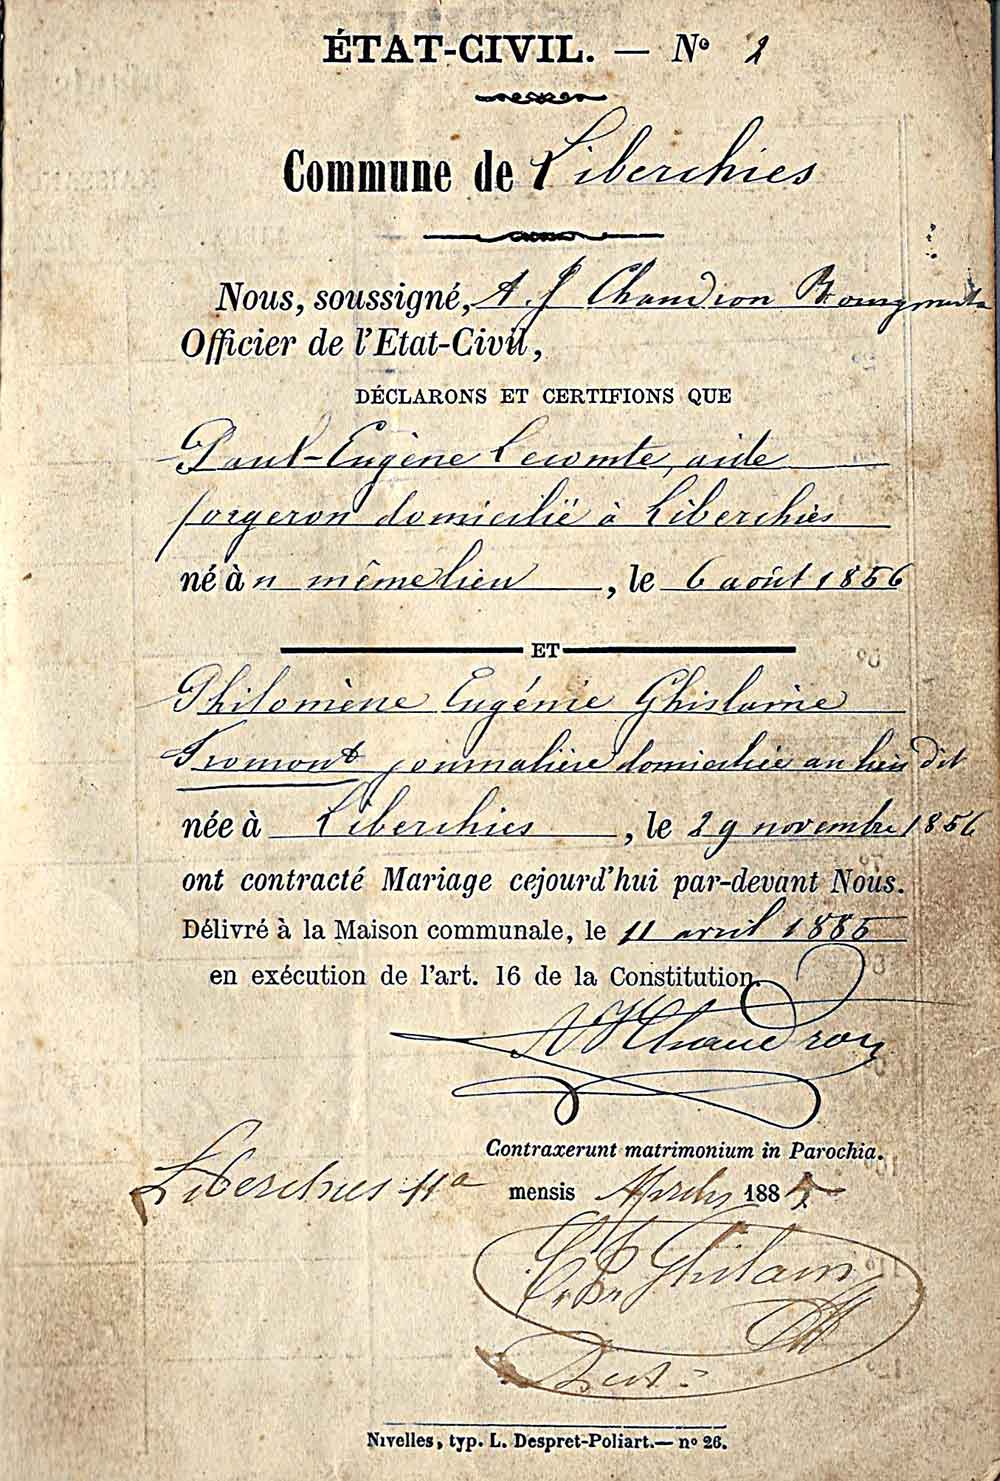 ÉTAT-CIVIL. — Nº 2
Commune de Liberchies
Nous, soussigné, A. J. Chaudron Bourgmestre
Officier de l'Etat-Civil,
DÉCLARONS ET CERTIFIONS QUE
Paul-Eugène Lecomte, aide
forgeron domicilié à Liberchies
né à même lieu, le 6 août 1856
ET
Philomène Eugénie Ghislaine
Fromont journalière domiciliée au lieu dit
née à Liberchies, le 29 novembre 1856
ont contracté Mariage cejourd'hui par-devant Nous.
Délivré à la Maison communale, le 11 avril 1885
en exécution de l'art. 16 de la Constitution.
A J Chaudron
Contraxerunt matrimonium in Parochia.
Liberchies 11a mensis Aprilis 1885
Ghilain
Nivelles, typ. L. Despret-Poliart.— nº 26.